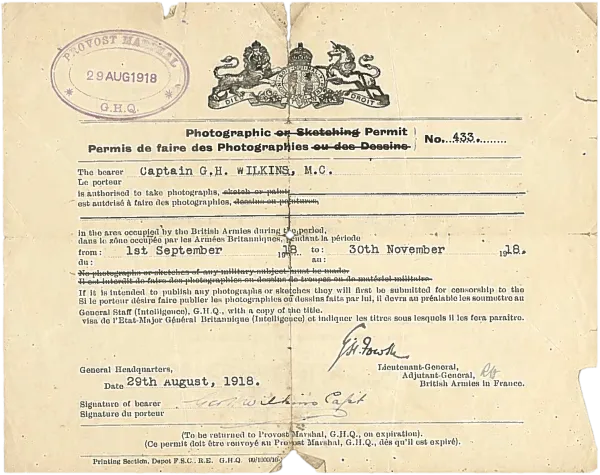 PROVOST MARSHAL
29 AUG 1918
G.H.Q.
DIEU DROIT
Photographic or Sketching Permit
Permis de faire des Photographies ou des Dessins
No. 433.
The bearer Captain G.H. WILKINS, M.C.
Le porteur
is authorised to take photographs, sketch or paint
est autorisé à faire des photographies, dessins ou peintures,
in the area occupied by the British Armies during the period,
dans le zône occupée par les Armées Britanniques, pendant la période
from: 1st September 1918 to: 30th November 1918.
du: au:
No photographs or sketches of any military subject must be made.
Il est interdit de faire des photographies ou dessins de troupes ou de matériel militaire.
If it is intended to publish any photographs or sketches they will first be submitted for censorship to the
Si le porteur désire faire publier les photographies ou dessins faits par lui, il devra au préalable les soumettre au
General Staff (Intelligence), G.H.Q., with a copy of the title.
visa de l'Etat-Major Général Britannique (Intelligence) et indiquer les titres sous lesquels il les fera paraître.
General Headquarters,
Date 29th August, 1918.
Lieutenant-General,
Adjutant-General,
British Armies in France.
Signature of bearer Geo H Wilkins Capt
Signature du porteur
(To be returned to Provost Marshal, G.H.Q., on expiration).
(Ce permis doit être renvoyé au Provost Marshal, G.H.Q., dès qu'il est expiré).
Printing Section, Depot F.S.C., R.E. G.H.Q.